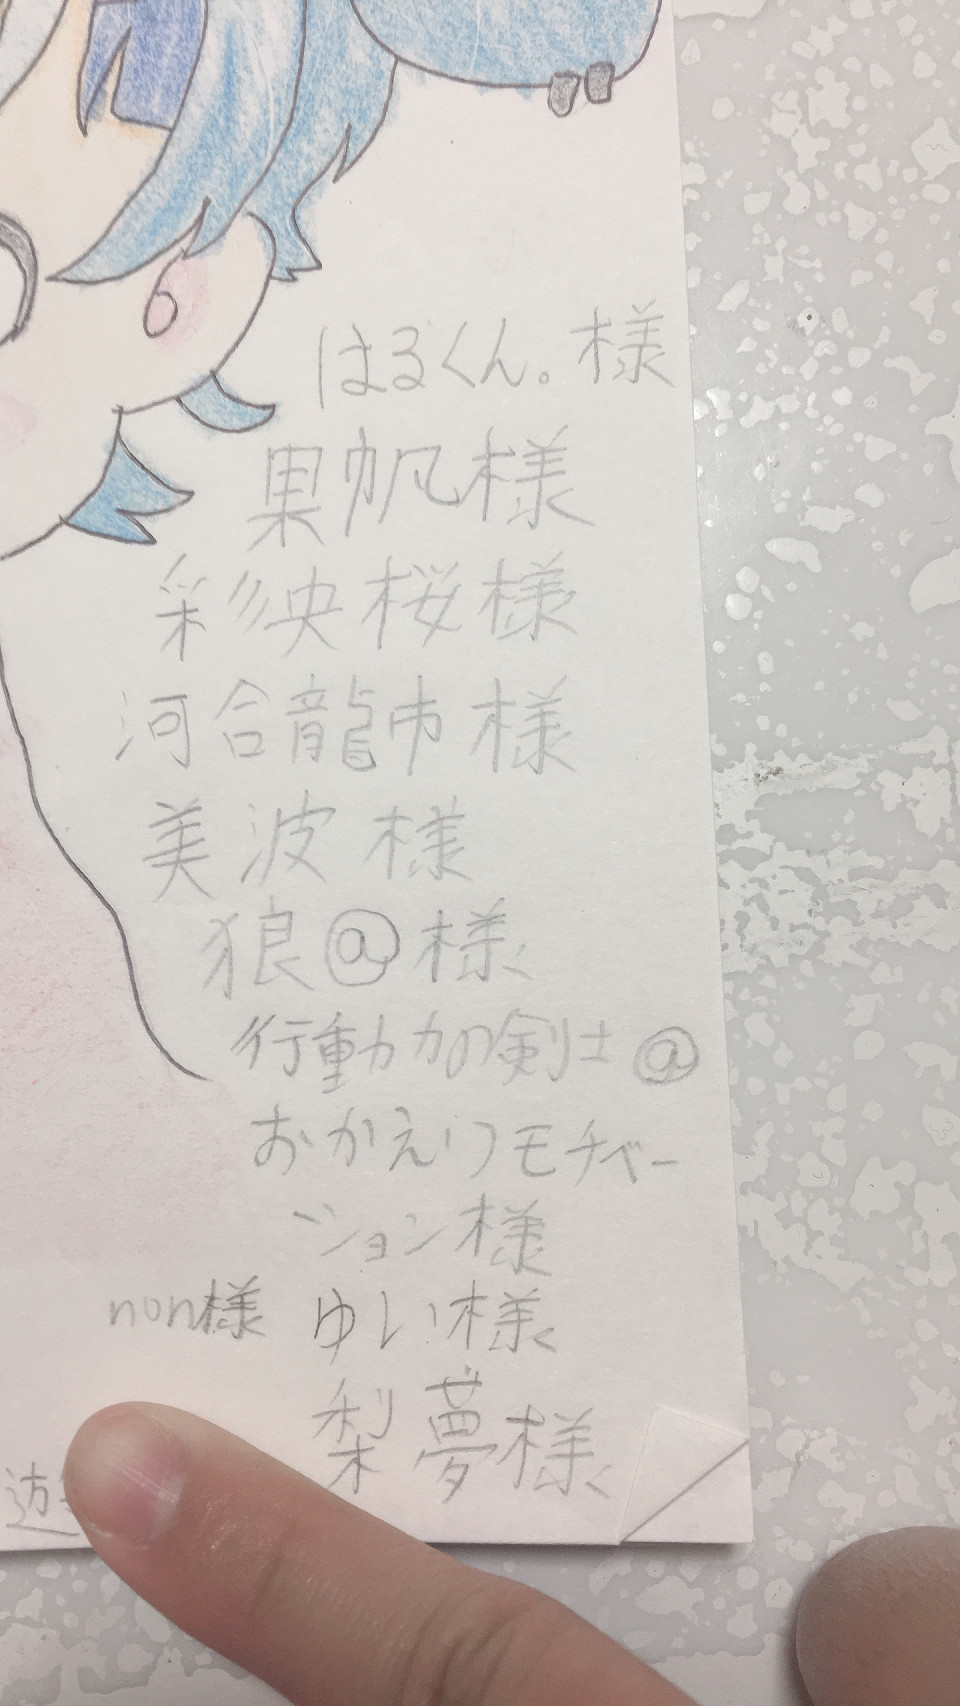 はるくん。様
果帆様
彩央桜様
河合龍市様
美波様
狼@様
行動力の剣士@
おかえりモチベー
ション様
non様 ゆい様
梨夢様
遊